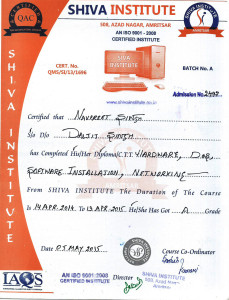 SHIVA INSTITUTE
508, AZAD NAGAR, AMRITSAR
AN ISO 9001 - 2008
CERTIFIED INSTITUTE
QAC
CERT. No.
QMS/SI/13/1696
SHIVA
INSTITUTE
BATCH No. A
www.shivainstitute.co.in
Admission No.
Certified that Navpreet Singh
S/o D/o Daljit Singh
has Completed His/Her Diploma/C.T.T. Hardware, Dos,
Software Installation, Networking
From SHIVA INSTITUTE The Duration of The Course
is 14 APR. 2014 To 13 APR. 2015 He/She Has Got A Grade
SHIVA INSTITUTE
DATE 05 MAY 2015
Course Co-Ordinator
IAQS
AN ISO 9001-2008
CERTIFIED INSTITUTE
Director
SHIVA INSTITUTE